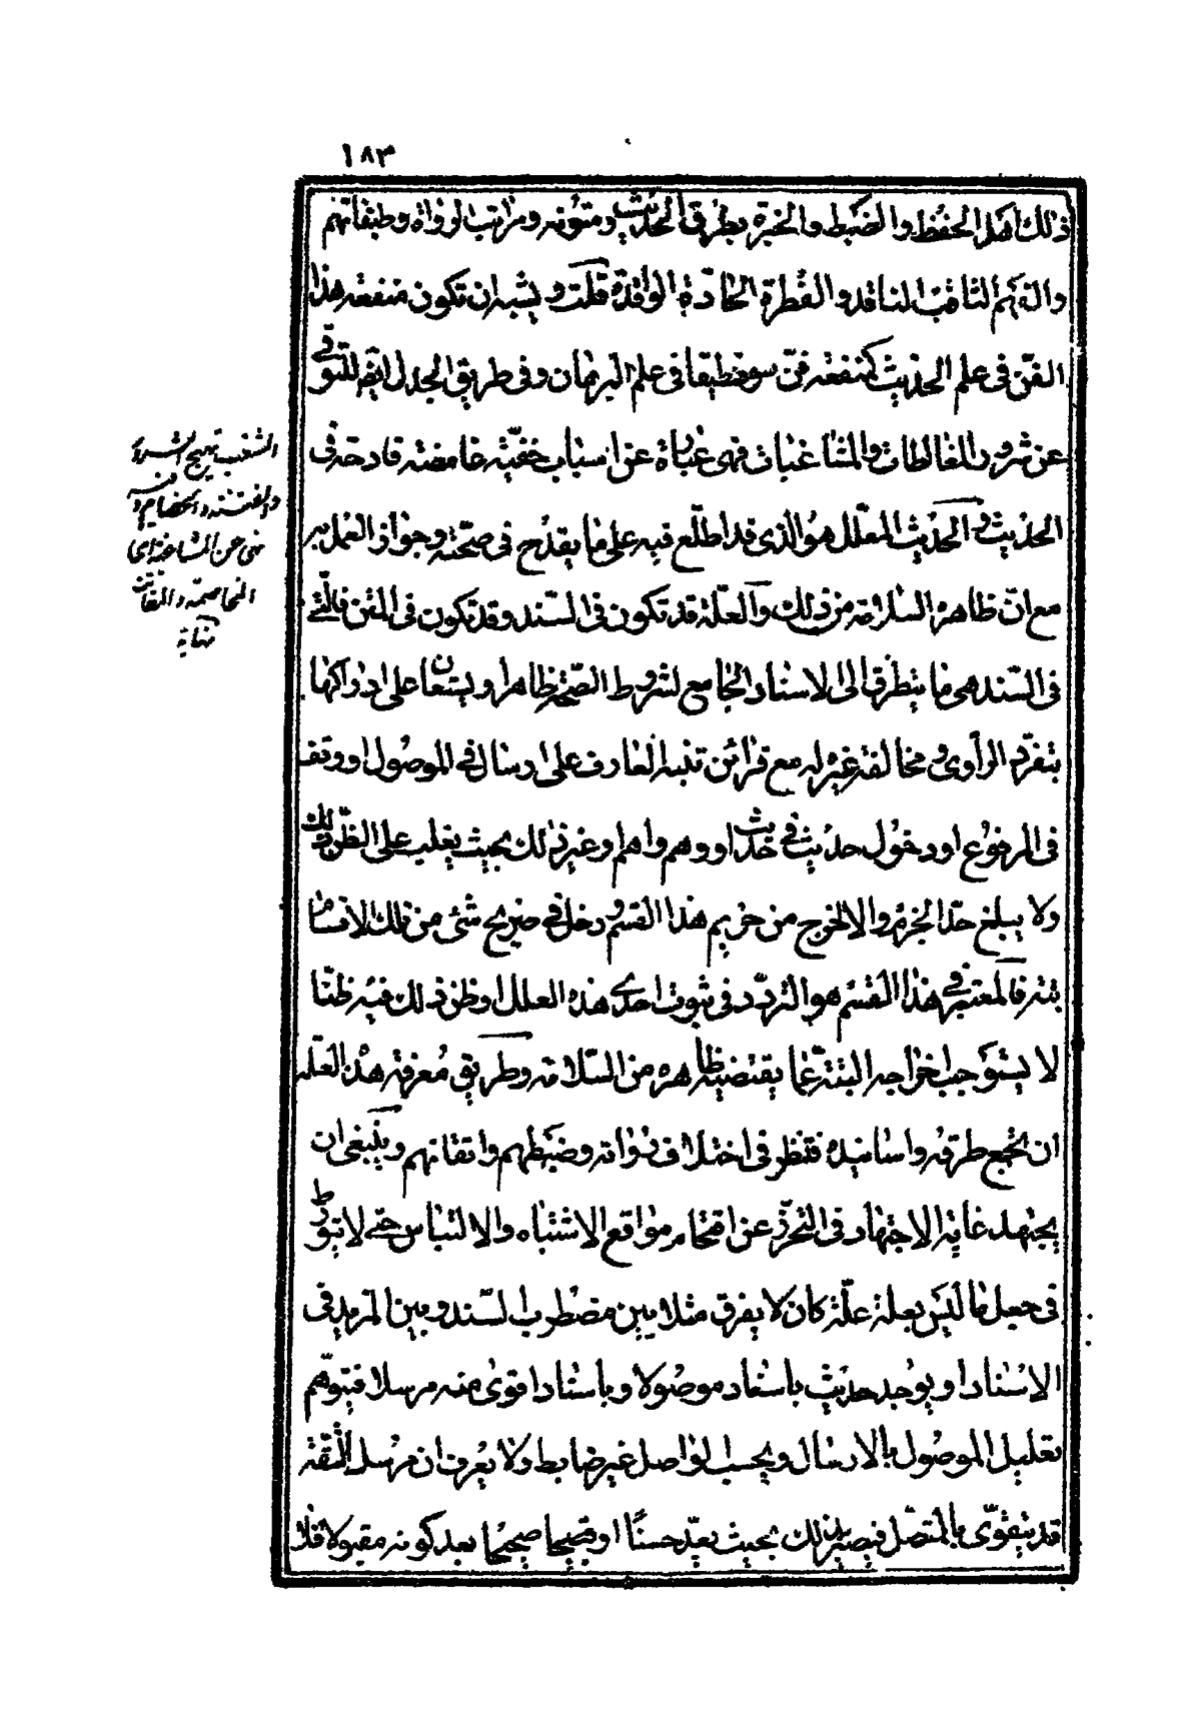 ١٨٣
ذلك اهل الحفظ والضبط والخبرة بطرق الحديث ومتونه ومراتب الرواة وطبقاتهم
والفهم الثاقب الناقد والفطرة الحادة الواقدة قلت ويشبه ان تكون منفعة هذا
الفن فى علم الحديث كمنفعة فن سوفسطيقا فى علم البرهان وفى طريق الجدل ايضا للتوقى
عن شرور المغالطات والمشاغبات فهى عبارة عن اسباب خفية غامضة قادحة فى
الحديث والحديث المعلل هو الذى قد اطلع فيه على ما يقدح فى صحته وجواز العمل به
مع ان ظاهره السلامة من ذلك والعلة قد تكون فى السند وقد تكون فى المتن فالتى
فى السند هى ما يتطرق الى الاسناد الجامع لشروط الصحة ظاهرا ويستعان على ادراكها
بتفرد الراوى ومخالفة غيره له مع قرائن تنبه العارف على ارسال فى الموصول او وقف
فى المرفوع او دخول حديث فى حديث او وهم واهم وغير ذلك بحيث يغلب على الظن ذلك
ولا يبلغ حد الجزم والا لخرج من حريم هذا القسم ودخل فى صريح شئ من تلك الاقسام
بتة فالمعتبر فى هذا القسم هو التردد فى ثبوت احدى هذه العلل او ظن ذلك فيه ظنا
لا يستوجب اخراجه البتة عما يقتضيه ظاهره من السلامة وطريق معرفة هذه العلة
ان يجمع طرقه واسانيده فتنظر فى اختلاف رواته وضبطهم واتقانهم وينبغى ان
يجتهد غاية الاجتهاد فى التحرز عن اقتحام مواقع الاشتباه والالتباس حتى لا يتورط
فى جعل ما ليس بعلة علة كان لا يفرق مثلا بين مضطرب السند وبين المزيد فى
الاسناد او يوجد حديث باسناد موصولا وباسناد اقوى منه مرسلا فيتوهم
تعليل الموصول بالارسال ويحسب الواصل غير ضابط ولا يعرف ان مرسل الثقة
قد يتقوى بالمتصل فيصير بذلك بحيث يعد حسنا او صحيحا بعد كونه مقبولا فلا
الشغب تهييج الشر
والفتنة والخصام ومنه
نهى عن المشاغبة اى
المخاصمة والمفاتنة
نهاية